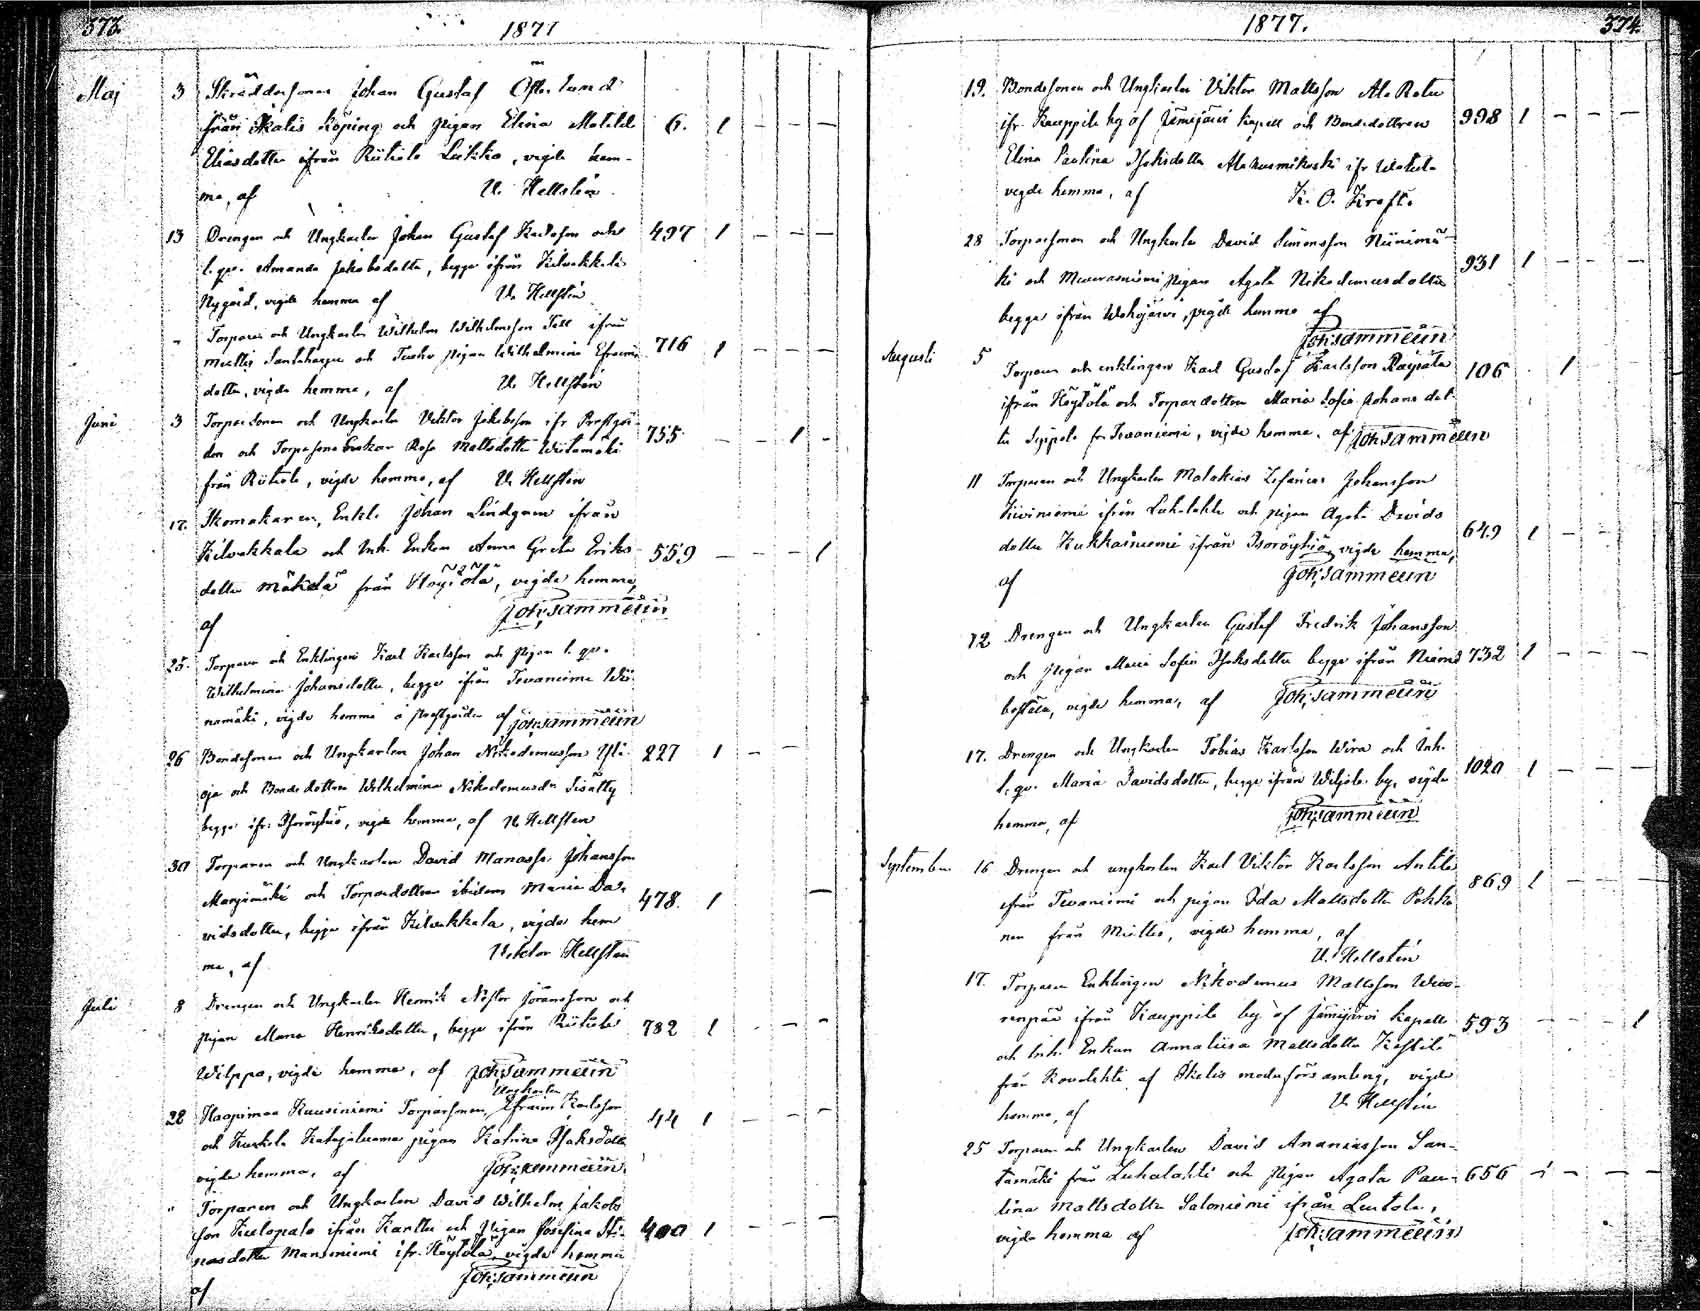 373.
1877
Maj 3 Skräddarsonen Johan Gustaf Österlund
från Ikalis Köping och pigan Elina Matilda 6. 1 – – –
Eliasdotter ifrån Riitiala Luikko, vigde hem-
ma, af V. Hellstén.
13 Drengen och Ungkarlen Johan Gustaf Karlsson och 497 1 – – –
l. qv. Amanda Jakobsdotter, begge ifrån Kilvakkala
Nygård, vigde hemma af V. Hellstén
" Torparen och Ungkarlen Wilhelm Wilhelmsson Tell ifrån
Miettis Santaharju och pigan Wilhelmina Efraims 716 1 – – –
dotter, vigde hemma, af V. Hellstén
Juni 3 Torparsonen och Ungkarlen Viktor Jakobsson ifr Prestgår-
den och Rosa Mattsdotter Wiitamäki 755 – – 1 –
från Riitiala, vigde hemma, af V. Hellstén
17. Skomakaren, Enkl. Johan Lindgren ifrån
Kilvakkala och Inh. Enkan Anna Greta Eriks- 559 – – – 1
dotter Mäkelä från Höytölä, vigde hemma,
af Joh; Sammeliin
25. Torparen och Enklingen Karl Karlsson och pigan l. qv.
Wilhelmina Johansdotter, begge ifrån Tevaniemi
, vigde hemma å prestgården af Joh; Sammeliin
26 Bondesonen och Ungkarlen Johan Nikodemusson Yli- 227 1 – –
oja och Bondedottren Wilhelmina Nikodemusdr Sisätty
begge ifr. Isoröyhiö, vigde hemma, af V. Hellsten
30 Torparen och Ungkarlen David Manasse Johansson
Marjamäki och Torparedottren ibidem Maria Da- 478. 1 –
vidsdotter, begge ifrån Kilvakkala, vigde hem
ma, af Viktor Hellstén
Juli 8 Drengen och Ungkarlen Henrik Nestor Göransson och
pigan Maria Henriksdotter, begge ifrån Riitiala 782 1 – – –
Wilppo, vigde hemma, af Joh; Sammeliin
Ungkarlen
28 Haapimaa Kuusiniemi Torparsonen, Efraim Karlsson 44 1 – – –
och Kurkela Katajaluoma pigan Katrina Isaksdotter
vigde hemma, af Joh; Sammeliin
" Torparen och Ungkarlen David Wilhelm Jakobs
son KuLopalo ifrån Karttu och pigan Josefina 400 1 – – –
dotter Mansoniemi ifr. Höytölä, vigde hemma
af Joh; Sammeliin
1877.
374.
19. Bondesonen och Ungkarlen Viktor Mattsson Ala Rotu
ifr. Kauppila by af Jämijärvi Kapell och Bondedottren 998 1 – – –
Elina Paulina Isaksdotter Alakuusmikoski ifr Watula
vigde hemma, af K. O. Kroft.
28 Torparsonen och Ungkarlen David Simonsson Niinimä-
ki och Muurasniemi pigan Agata Nikodemusdotter 931 1 – – –
begge ifrån Wehojärvi, vigde hemma af
Joh; Sammeliin
Augusti 5 Torparen och enklingen Karl Gustaf Karlsson Raipala 106 1
ifrån Höytölä och Torpardottren Maria Sofia Johans dot-
ter Sippola fr. Tevaniemi, vigde hemma, af Joh; Sammeliin
11 Torparen och Ungkarlen Malakias Zefanias Johansson
Kiviniemi ifrån Luhalahti och pigan Agata Davids 649 1 – – –
dotter Kukkasniemi ifrån Isoröyhiö vigde hemma,
af Joh; Sammeliin
12 Drengen och Ungkarlen Gustaf Fredrik Johansson
och pigan Maria Sofia Isaksdotter begge ifrån Niemis 732 1 – – –
boställe, vigde hemma, af Joh; Sammeliin
17. Drengen och Ungkarlen Tobias Karlsson Wira och Inh.
l. qv. Maria Davidsdotter, begge ifrån Wiljala by, vigde 1020 1 – – –
hemma, af Joh; Sammeliin
September 16 Drengen och ungkarlen Karl Viktor Karlsson Antila
ifrån Tevaniemi och pigan Ida Mattsdotter Pokko 869 1 – – –
nen från Miettis, vigde hemma, af
V. Hellstén
17. Torparen Enklingen Nikodemus Mattsson Wuo-
renpää ifrån Kauppila by af Jämijärvi Kapell 593 – – – 1
och Inh. Enkan Annaliisa Mattsdotter Kestilä
från Kovelahti af Ikalis moderförsamling, vigde
hemma, af V. Hellstén
25 Torparen och Ungkarlen David Ananiasson San-
tamäki från Luhalahti och pigan Agata Pau- 656 1 – – –
lina Mattsdotter Saloniemi ifrån Leutola,
vigde hemma af Joh; Sammeliin